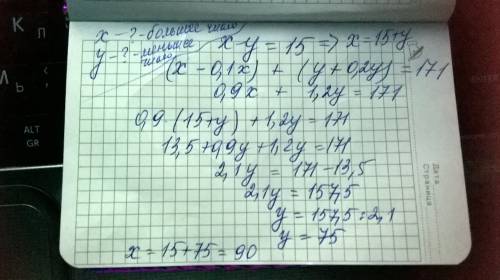 x - ? - большее число
y - ? - меньшее число
x - y = 15 => x = 15+y
(x - 0,1x) + (y + 0,2y) = 171
0,9x + 1,2y = 171
0,9 (15+y) + 1,2y = 171
13,5 + 0,9y + 1,2y = 171
2,1y = 171 - 13,5
2,1y = 157,5
y = 157,5 : 2,1
y = 75
x = 15+75 = 90
Дата
Страница
К
Л
Ь
ALT
GR